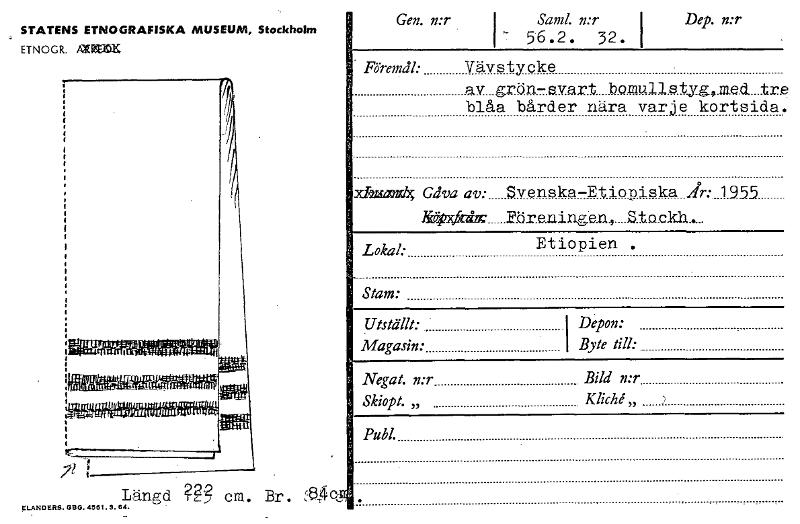 STATENS ETNOGRAFISKA MUSEUM, Stockholm
ETNOGR.
Längd 222 cm. Br. 84cm.
ELANDERS. GBG. 4561. 3. 64.
Gen. n:r Saml. n:r Dep. n:r
56.2. 32.
Föremål: Vävstycke
av grön-svart bomullstyg,med tre
blåa bårder nära varje kortsida.
Insaml. Gåva av: Svenska-Etiopiska År: 1955
Köp från: Föreningen, Stockh.
Lokal: Etiopien .
Stam:
Utställt: Depon:
Magasin: Byte till:
Negat. n:r Bild n:r
Skiopt. „ Kliché „
Publ.